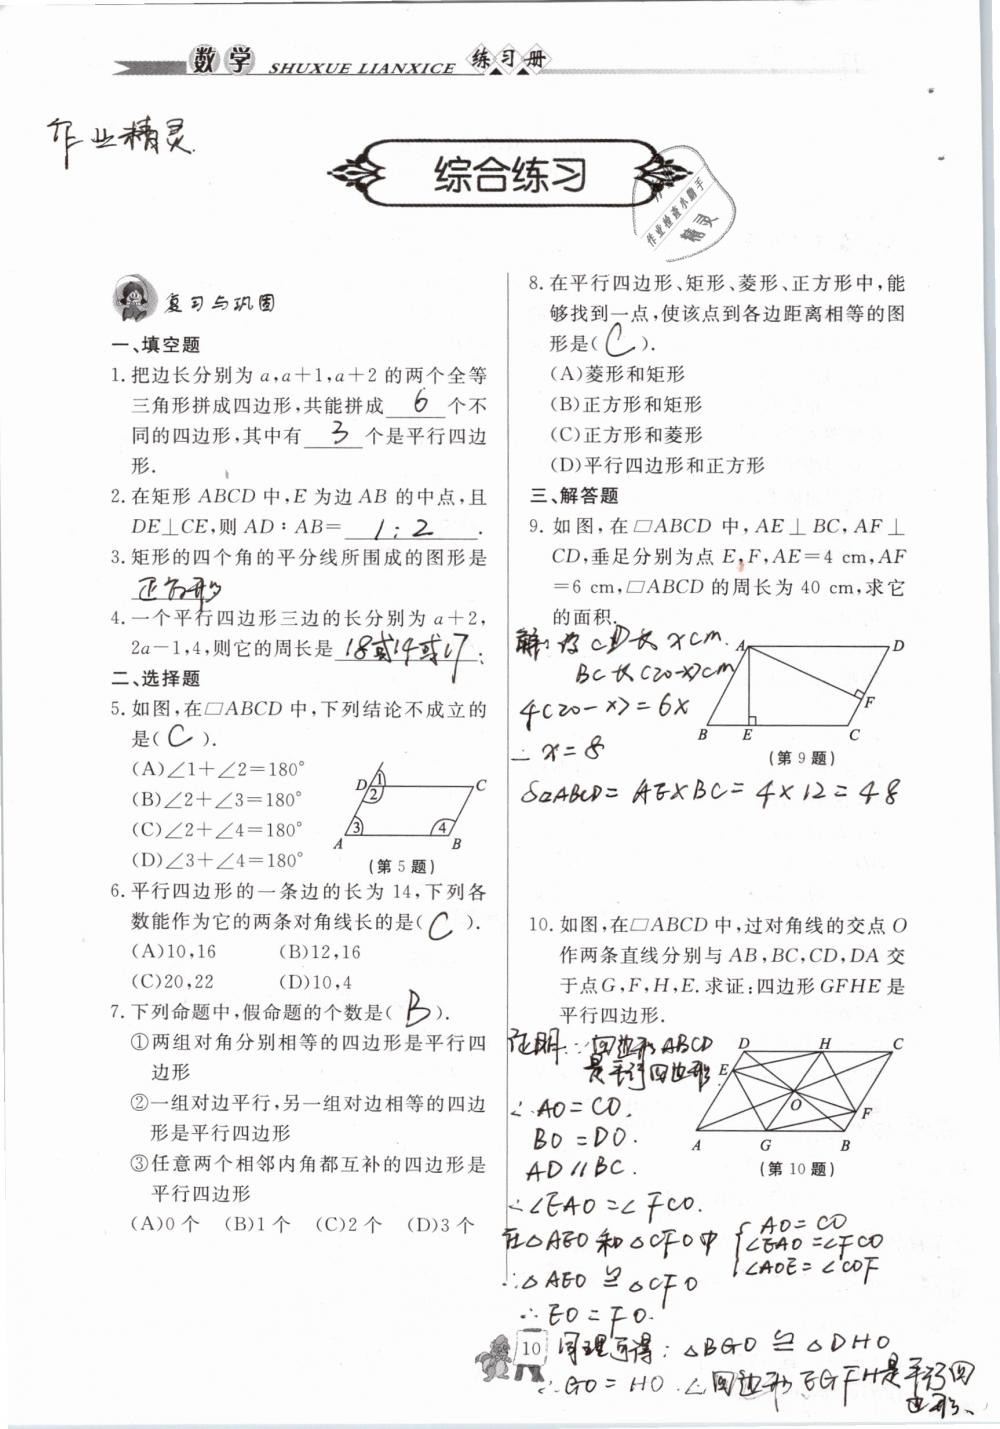 数学 SHUXUE LIANXICE 练习册
作业精灵
综合练习
作业检查小助手
精灵
复习与巩固
一、填空题
1. 把边长分别为 a,a+1,a+2 的两个全等
三角形拼成四边形,共能拼成 6 个不
同的四边形,其中有 3 个是平行四边
形.
2. 在矩形 ABCD 中,E 为边 AB 的中点,且
DE⊥CE,则 AD∶AB= 1:2 .
3. 矩形的四个角的平分线所围成的图形是
正方形
4. 一个平行四边形三边的长分别为 a+2,
2a-1,4,则它的周长是 18或14或17 .
二、选择题
5. 如图,在▱ABCD 中,下列结论不成立的
是( C ).
(A)∠1+∠2=180°
(B)∠2+∠3=180°
(C)∠2+∠4=180°
(D)∠3+∠4=180°
D 1 2 C
A 3 4 B
(第 5 题)
6. 平行四边形的一条边的长为 14,下列各
数能作为它的两条对角线长的是( C ).
(A)10,16 (B)12,16
(C)20,22 (D)10,4
7. 下列命题中,假命题的个数是( B ).
①两组对角分别相等的四边形是平行四
边形
②一组对边平行,另一组对边相等的四边
形是平行四边形
③任意两个相邻内角都互补的四边形是
平行四边形
(A)0 个 (B)1 个 (C)2 个 (D)3 个
8. 在平行四边形、矩形、菱形、正方形中,能
够找到一点,使该点到各边距离相等的图
形是( C ).
(A)菱形和矩形
(B)正方形和矩形
(C)正方形和菱形
(D)平行四边形和正方形
三、解答题
9. 如图,在▱ABCD 中,AE⊥BC,AF⊥
CD,垂足分别为点 E,F,AE=4 cm,AF
=6 cm,▱ABCD 的周长为 40 cm,求它
的面积.
解:设CD长xcm.
BC长(20-x)cm
4(20-x)=6x
∴x=8
S▱ABCD=AE×BC=4×12=48
A D
F
B E C
(第 9 题)
10. 如图,在▱ABCD 中,过对角线的交点 O
作两条直线分别与 AB,BC,CD,DA 交
于点G,F,H,E. 求证:四边形 GFHE 是
平行四边形.
证明:∵四边形ABCD
是平行四边形
∴AO=CO.
BO=DO.
AD∥BC.
D H C
E
O
F
A G B
(第 10 题)
∴∠EAO=∠FCO.
在△AEO和△CFO中
AO=CO
∠EAO=∠FCO
∠AOE=∠COF
∴△AEO≌△CFO
∴EO=FO.
同理可得:△BGO≌△DHO
∴GO=HO.∴四边形EGFH是平行四
边形、
10